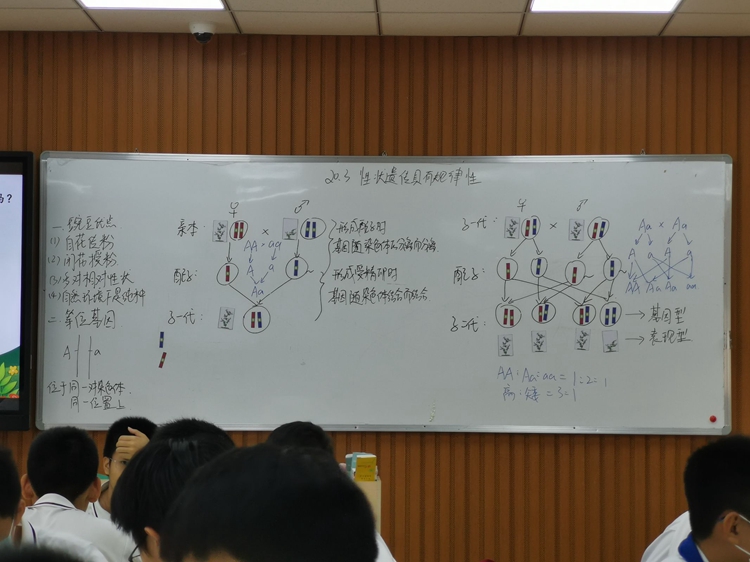 吗?
20.3 性状遗传具有规律性
一. 豌豆优点
(1) 自花传粉
(2) 闭花授粉
(3) 多对相对性状
(4) 自然状态下是纯种
二. 等位基因
A a
位于同一对染色体
同一位置上
♀ ♂
亲本: ×
AA · aa
A a
Aa
配子:
子一代:
形成配子时
基因随染色体分离而分离
形成受精卵时
基因随染色体结合而结合
♀ ♂
子一代: ×
Aa × Aa
配子:
A a A a
AA Aa Aa aa
子二代:
→ 基因型
→ 表现型
AA:Aa:aa = 1:2:1
高:矮 = 3:1